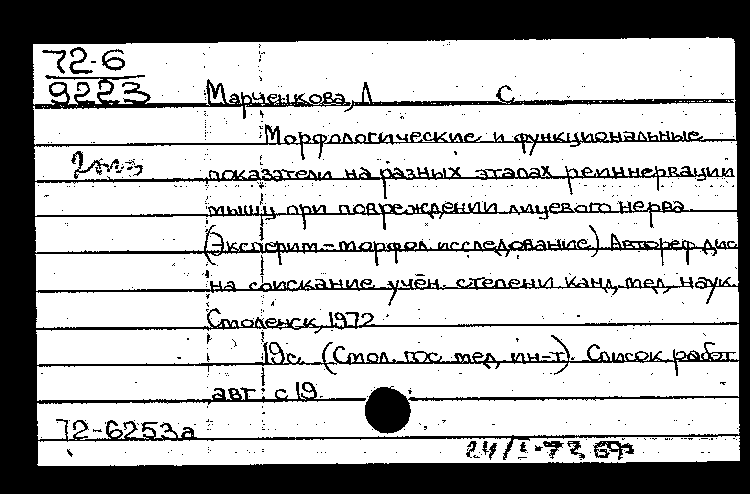 72-6
9223
Марченкова, Л С.
Морфологические и функциональные
2 экз
показатели на разных этапах реиннервации
мышц при повреждении лицевого нерва.
(Эксперим.-морфол. исследование) Автореф дис
на соискание учён. степени канд. мед. наук.
Смоленск, 1972
19с. (Смол. гос мед. ин-т). Список работ
авт: с 19.
72-6253а
24/I-73